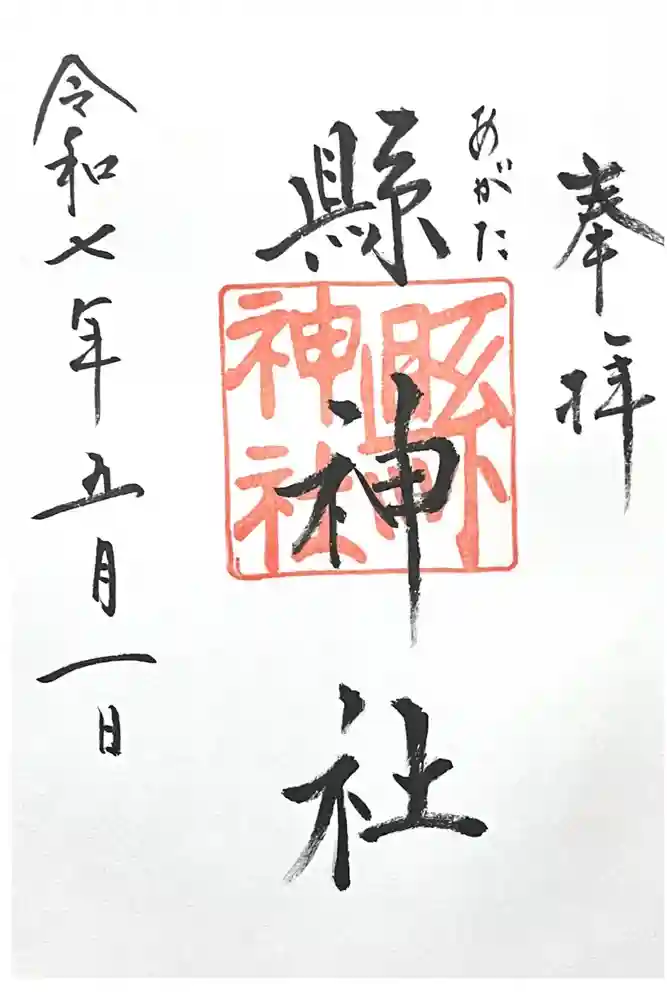 奉拝
あがた
縣神社
縣神社
令和七年五月一日